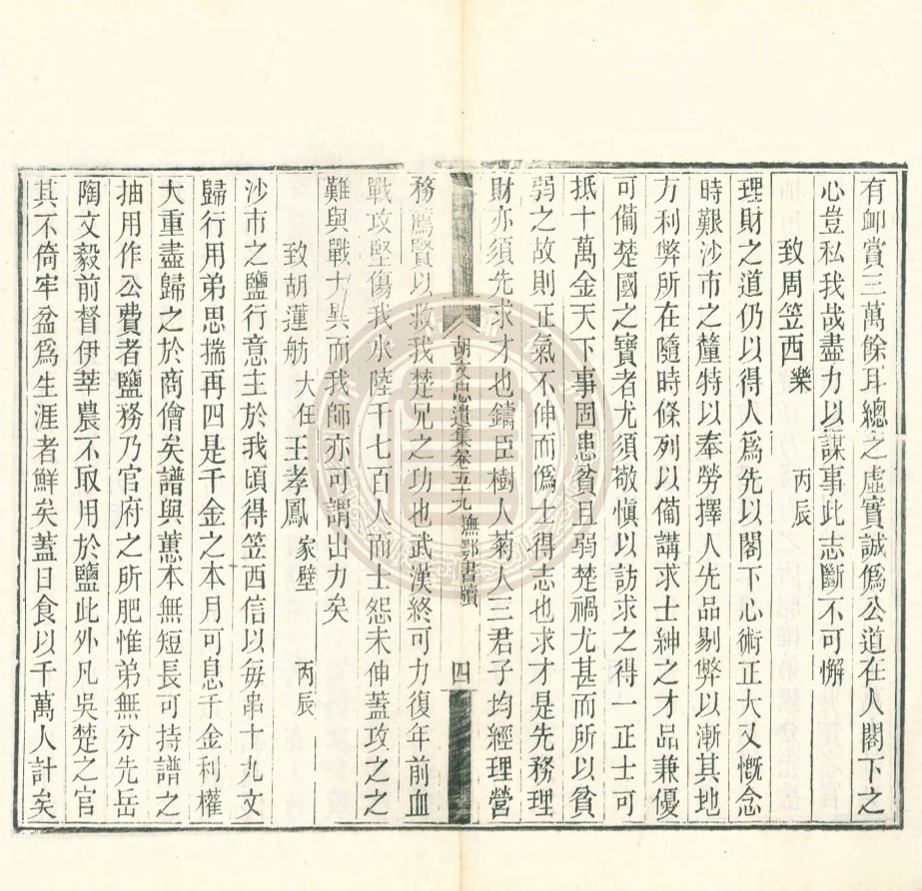 有卹賞三萬餘耳總之虛實誠僞公道在人閣下之
心豈私我哉盡力以謀事此志斷不可懈
致周笠西樂 丙辰
理財之道仍以得人爲先以閣下心術正大又慨念
時艱沙市之釐特以奉勞擇人先品剔弊以漸其地
方利弊所在隨時條列以備講求士紳之才品兼優
可備楚國之寶者尤須敬愼以訪求之得一正士可
抵十萬金天下事固患貧且弱楚禍尤甚而所以貧
弱之故則正氣不伸而僞士得志也求才是先務理
財亦須先求才也鑄臣樹人菊人三君子均經理營
胡文忠遺集卷五十九 撫鄂書牘 四
務薦賢以救我楚兄之功也武漢終可力復年前血
戰攻堅傷我水陸千七百人而士怨未伸蓋攻之之
難與戰大異而我師亦可謂出力矣
致胡蓮舫大任王孝鳳家璧 丙辰
沙市之鹽行意主於我頃得笠西信以每串十九文
歸行用弟思揣再四是千金之本月可息千金利權
大重盡歸之於商儈矣譜與蕙本無短長可持譜之
抽用作公費者鹽務乃官府之所肥惟弟無分先岳
陶文毅前督伊莘農不取用於鹽此外凡吳楚之官
其不倚牢盆爲生涯者鮮矣蓋日食以千萬人計矣